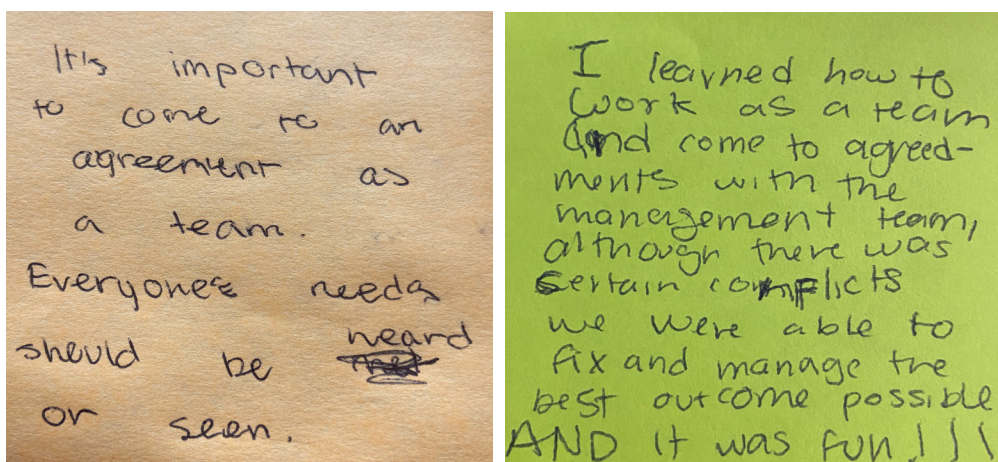 It's important
to come to an
agreement as
a team.
Everyone's needs
should be heard
or seen.
I learned how to
work as a team
and come to agreed-
ments with the
management team,
although there was
sertain complicts
we were able to
fix and manage the
best outcome possible
AND it was fun!!!